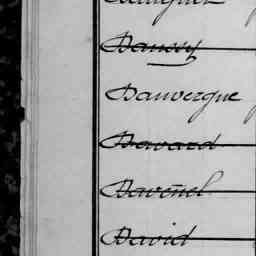 Daussy
Dauvergne
Davard
Davenel
David